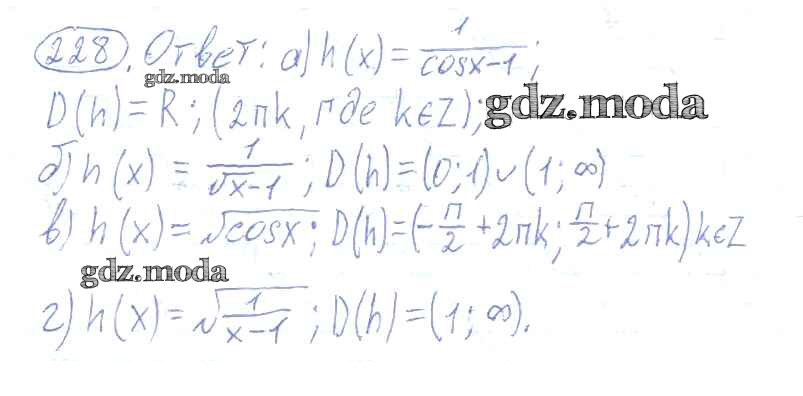 228. Ответ: а) h(x) = 1/(cosx-1);
gdz.moda
D(h) = R; (2πk, где k∈Z);
gdz.moda
б) h(x) = 1/(√x-1); D(h) = (0; 1)∪(1; ∞)
в) h(x) = √cosx; D(h) = (-π/2 + 2πk; π/2 + 2πk) k∈Z
gdz.moda
г) h(x) = √(1/(x-1)); D(h) = (1; ∞).